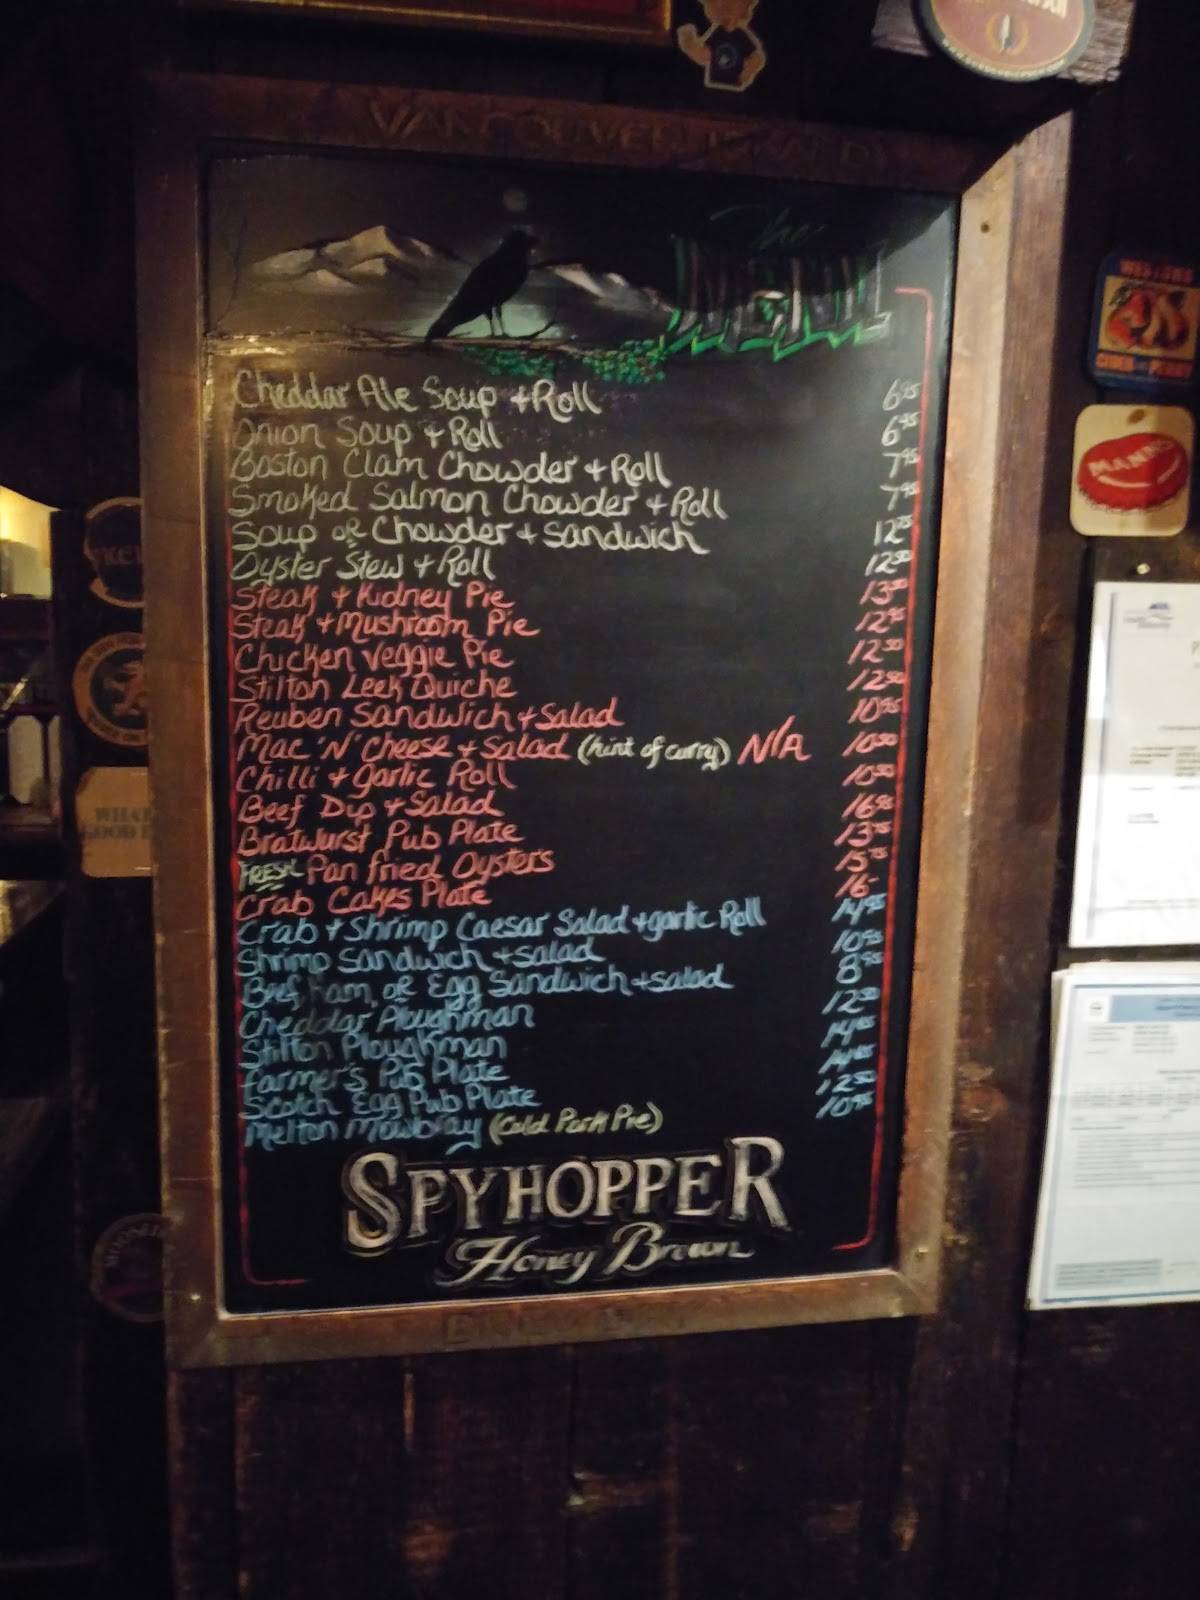 VANCOUVER ISLAND
The
Cheddar Ale Soup + Roll 6 95
Onion Soup + Roll 6 95
Boston Clam Chowder + Roll 7 95
Smoked Salmon Chowder + Roll 7 95
Soup or Chowder + Sandwich 12
Oyster Stew + Roll 12 50
Steak + Kidney Pie 13 50
Steak + Mushroom Pie 12 95
Chicken Veggie Pie 12 50
Stilton Leek Quiche 12 50
Reuben Sandwich + Salad 10 95
Mac 'N' Cheese + Salad (hint of curry) N/A 10 50
Chilli + Garlic Roll 10 50
Beef Dip + Salad 16 95
Bratwurst Pub Plate 13
FRESH Pan fried Oysters 15
Crab Cakes Plate 16-
Crab + Shrimp Caesar Salad + garlic Roll 14 95
Shrimp Sandwich + salad 10 95
Beef, Ham, or Egg Sandwich + salad 8 95
Cheddar Ploughman 12 50
Stilton Ploughman 14
Farmer's Pub Plate 14
Scotch Egg Pub Plate 12 50
Melton Mowbray (Cold Pork Pie) 10 95
SPYHOPPER
Honey Brown
MANN'S